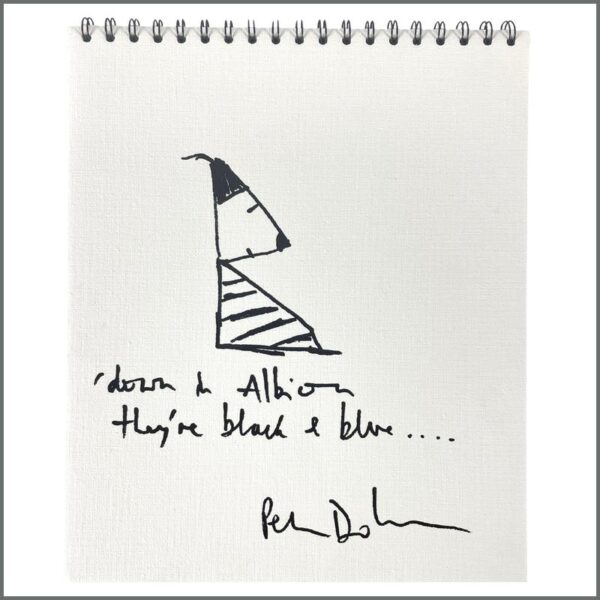 'down in Albion
they're black & blue....
Peter Doherty